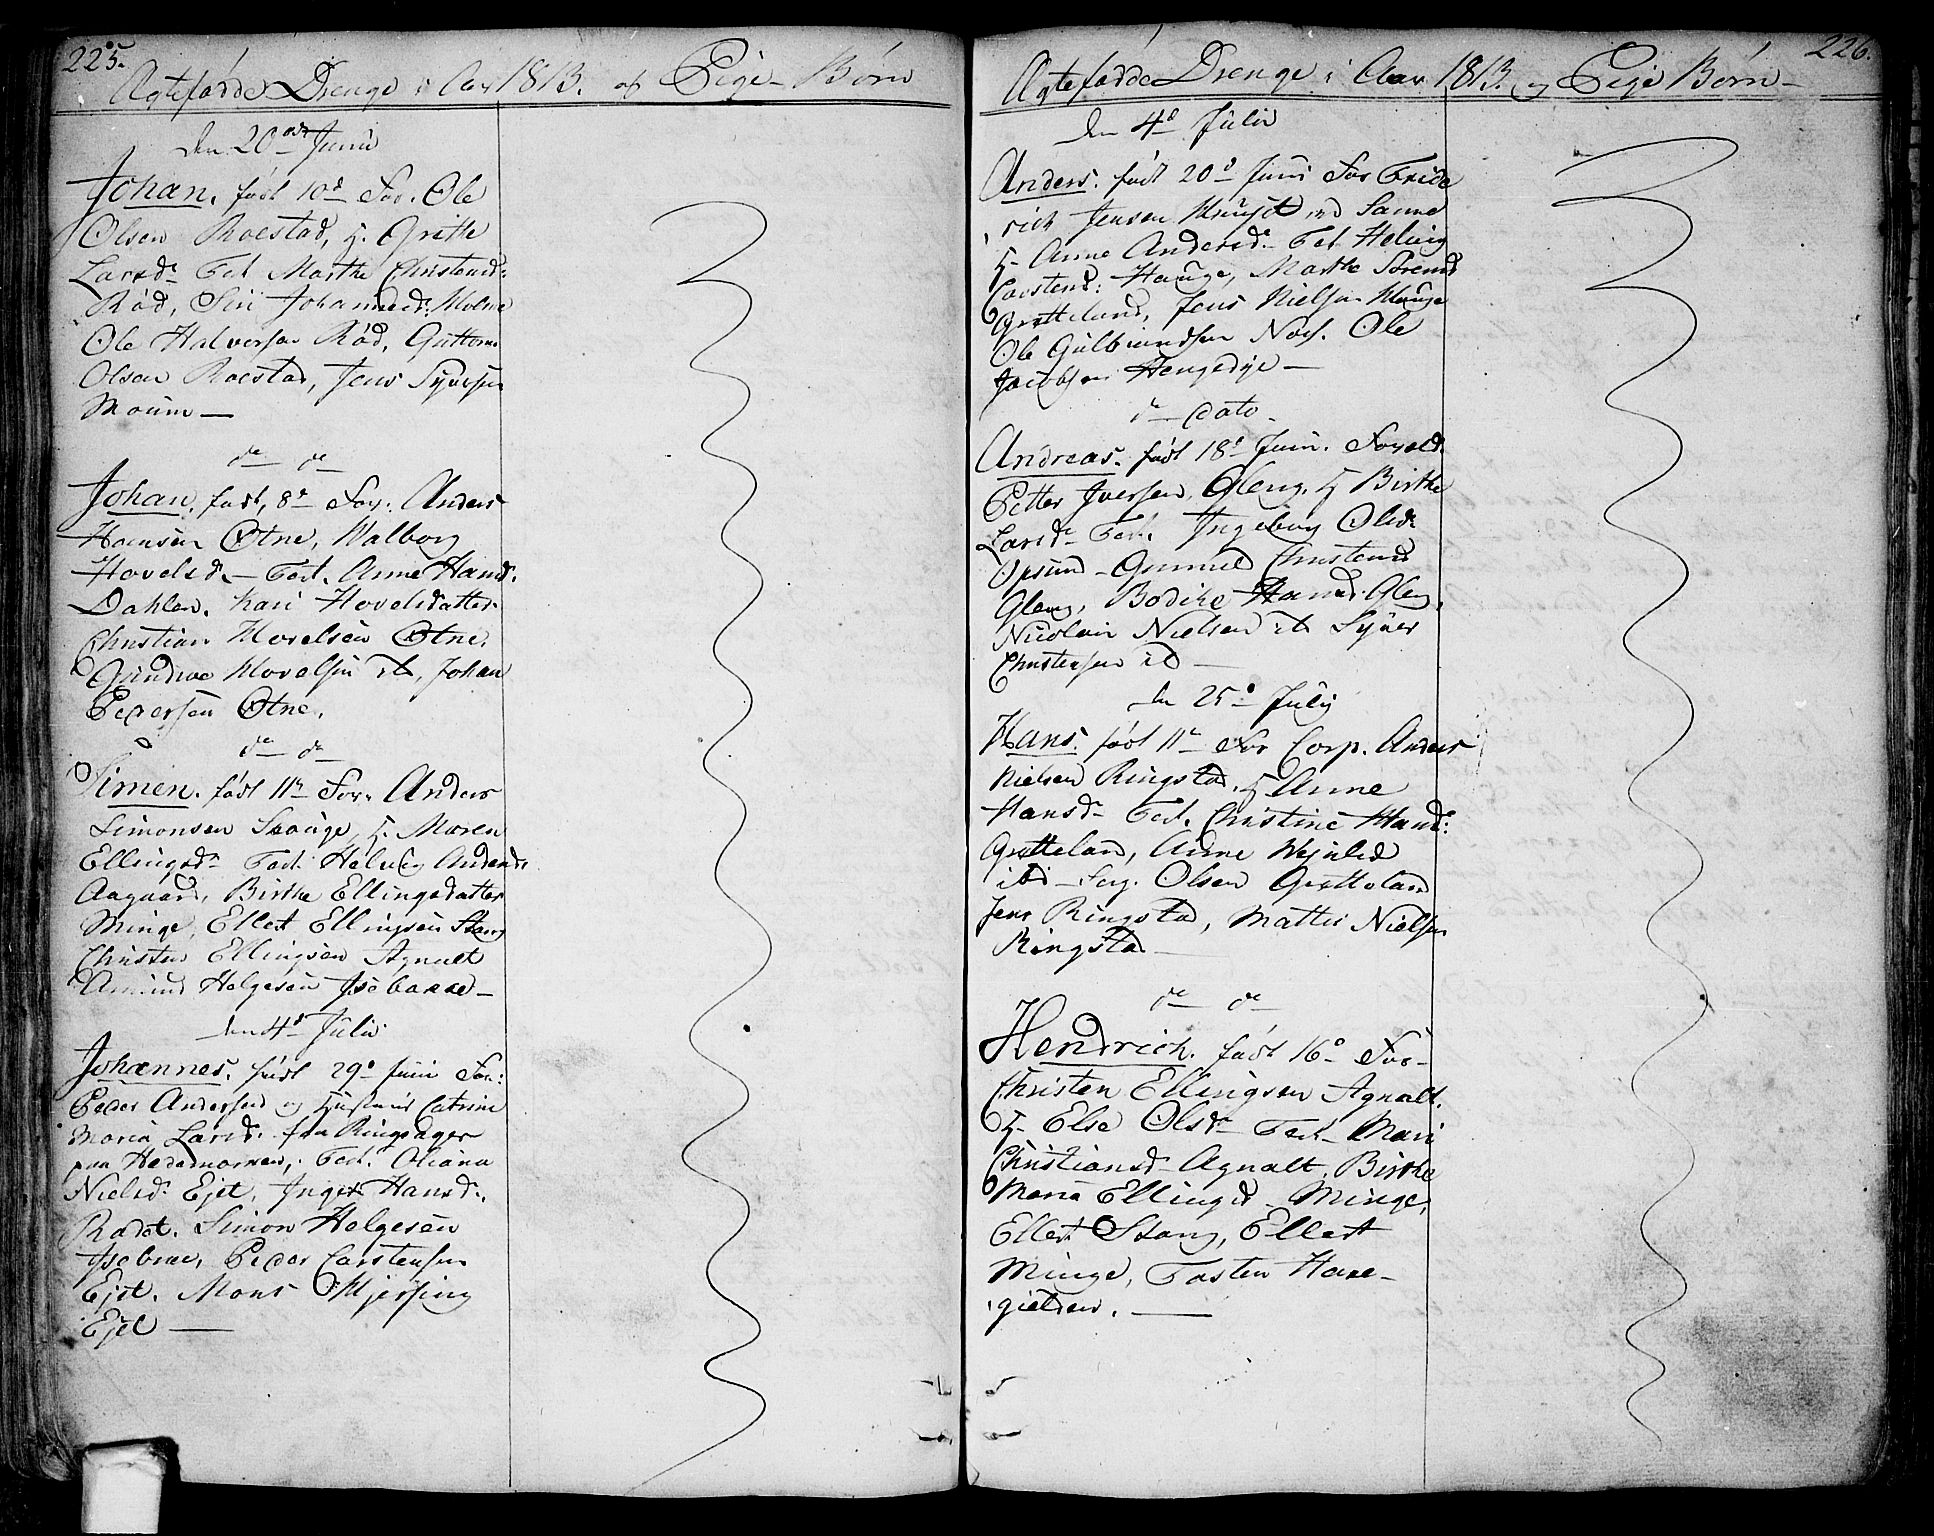 225.
Ægtefødde Drenge i Aar 1813. og Pige-Børn
den 20de Junii
Johan. født 10d For. Ole
Olsen Roestad, h. Grethe
Larsd. Test Marthe Christensd:
Rød, Siri Johannesd: Holme
Ole Halvorsen Rød, Guttorm
Olsen Roestad, Jens Syversen
Moum —
de — de
Johan, født, 8de For. Anders
Hansen Otne, Walborg
Hovelsd. — Test. Anne Hansd.
Dahlen. Kari Hovelsdatter
Christian Hovelsen Otne.
Gundroe Hovelsen ib, Johan
Pedersen Otne.
de — de
Simen. født 11te For. Anders
Simonsen Stange, h. Maren
Ellingsd. Test: Helvig Andersd:
Aagaard, Birthe Ellingsdatter
Minge, Ellert Ellingsen Stang
Christen Ellingsen Agnalt
Amund Helgesen Isebakke —
den 4d Julii
Johannes. født 29d Junii For:
Peder Andersen og Hustrue Catrine
Maria Larsd. fra Ringsager
paa Hedemarken, Test. Oliana
Nielsd. Ejet, Inger Hansd.
Rødet. Simon Helgesen
Isebakke, Peder Carstensen
Ejet. Mons Mjersing
Ejet —
226.
Ægtefødde Drenge i Aar 1813. og Pige Børn —
den 4d Julii
Anders. født 20d Junii For Fride
rich Jensen
h. Anne Andersd. Test Helvig
Carstensd: Hauge, Marthe Sørensd
Grøtteland, Jens Nielsen Hauge
Ole Gulbrandsen Noes. Ole
Jacobsen Hengedye —
de — dato —
Andreas. født 18d Junii. Foræld.
Petter Iversen, Gleng, h Birthe
Larsd. Test. Ingeborg Olsd.
Opsund — Gunnild Christensd
Gleng, Bodike Hansd Gleng,
Nicolai Nielsen ib Syver
Christensen ib —
den 25d Julij
Hans. født 11te For Corp. Anders
Nielsen Ringstad, h Anne
Hansd. Test. Christine Hansd:
Grøtteland, Anne
ibd — Serg. Olsen Grøtteland
Jens Ringstad, Mattis Nielsen
Ringstad —
de — de
Hendrich. født 16d For —
Christen Ellingsen Agnalt.
h. Else Olsd. Test — Mari
Christiansd. Agnalt, Birthe
Maria Ellingsd. Minge,
Ellert Stang, Ellert
Minge, Tosten Hare-
gielden. —